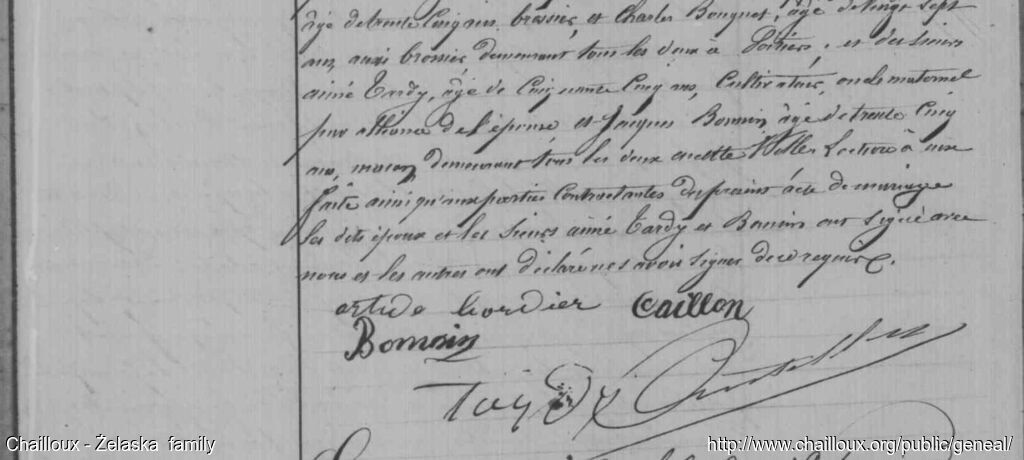 âgé de trente cinq ans, brossier, et Charles Bouquet, âgé de vingt sept
ans, aussi brossier demeurant tous les deux à Poitiers, et des sieurs
aimé Tardy, âgé de Cinquante Cinq ans, Cultivateur, oncle maternel
par alliance de l'épouse et Jacques Bonnin âgé de trente Cinq
ans, maçon, demeurant tous les deux en cette Ville. Lecture à eux
faite ainsi qu'aux parties Contractantes du présent acte de mariage
les dits époux et les Sieurs aimé Tardy et Bonnin ont signé avec
nous et les autres ont déclaré ne savoir signer de ce requis.
Caillon
Bonnin
Tardy
Chailloux - Želaska family
http://www.chailloux.org/public/geneal/